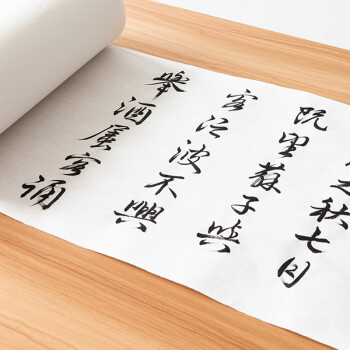 之秋七月
既望蘇子與
客江波不興
舉酒屬客誦